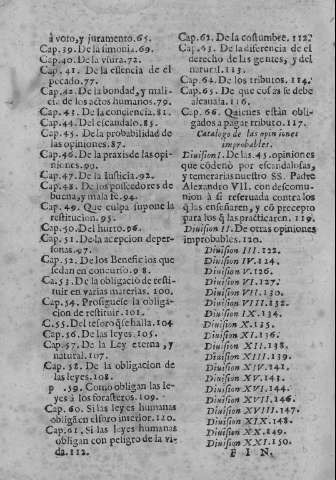 à voto, y juramento.65.
Cap.39. De la simonia.69.
Cap.40. De la vsura.72.
Cap.41. De la essencia de el
pecado.77.
Cap.42. De la bondad, y mali-
cia de los actos humanos.79.
Cap.43. De la conciencia.81.
Cap.44. Del escandalo.85.
Cap.45. De la probabilidad de
las opiniones.87.
Cap.46. De la praxis de las opi-
niones.90.
Cap.47. De la Iusticia.92.
Cap.48. De los posseedores de
buena, y mala fe.94.
Cap.49. Que culpa supone la
restitucion.95.
Cap.50. Del hurto.96.
Cap.51. De la acepcion de per-
sonas.97.
Cap.52. De los Beneficios que
se dan en concurso.98.
Ca.53. De la obligació de resti-
tuir en varias materias.100.
Cap.54. Prosiguese la obliga-
cion de restituir.102.
C.55. Del tesoro q̃ se halla.104
Cap.56. De las leyes.105.
Cap.57. De la Ley eterna, y
natural.107.
Cap.58. De la obligacion de
las leyes.108.
p .59. Como obligan las le-
yes à los forasteros.109.
Cap.60. Si las leyes humanas
obligã en el foro interior.110.
Cap.61. Si las leyes humanas
obligan con peligro de la vi-
da.112.
Cap.62. De la costumbre.112.
Cap.63. De la diferencia de el
derecho de las gentes, y del
natural.113.
Cap.64. De los tributos.114.
Cap.65. De que cosas se debe
alcauala.116.
Cap.66. Quienes están obli-
gados a pagar tributo.117.
Catalogo de las opiniones
improbables.
Diuision I. De las 45. opiniones
que cõdenò por escandalosas,
y temerarias nuestro SS. Padre
Alexandro VII. con descomu-
nion à si referuada contra los
q̃ las enseñaren, y cõ precepto
para los q̃ las practicaren.119.
Diuision II. De otras opiniones
improbables.120.
Diuision III.122.
Diuision IV.124.
Diuision V.126.
Diuision VI.127.
Diuision VII.130.
Diuision VIII.132.
Diuision IX.134.
Diuision X.135.
Diuision XI.136.
Diuision XII.138.
Diuision XIII.139.
Diuision XIV.141.
Diuision XV.143.
Diuision XVI.144.
Diuision XVII.146.
Diuision XVIII.147.
Diuision XIX.148.
Diuision XX.149.
Diuision XXI.150.
FIN.